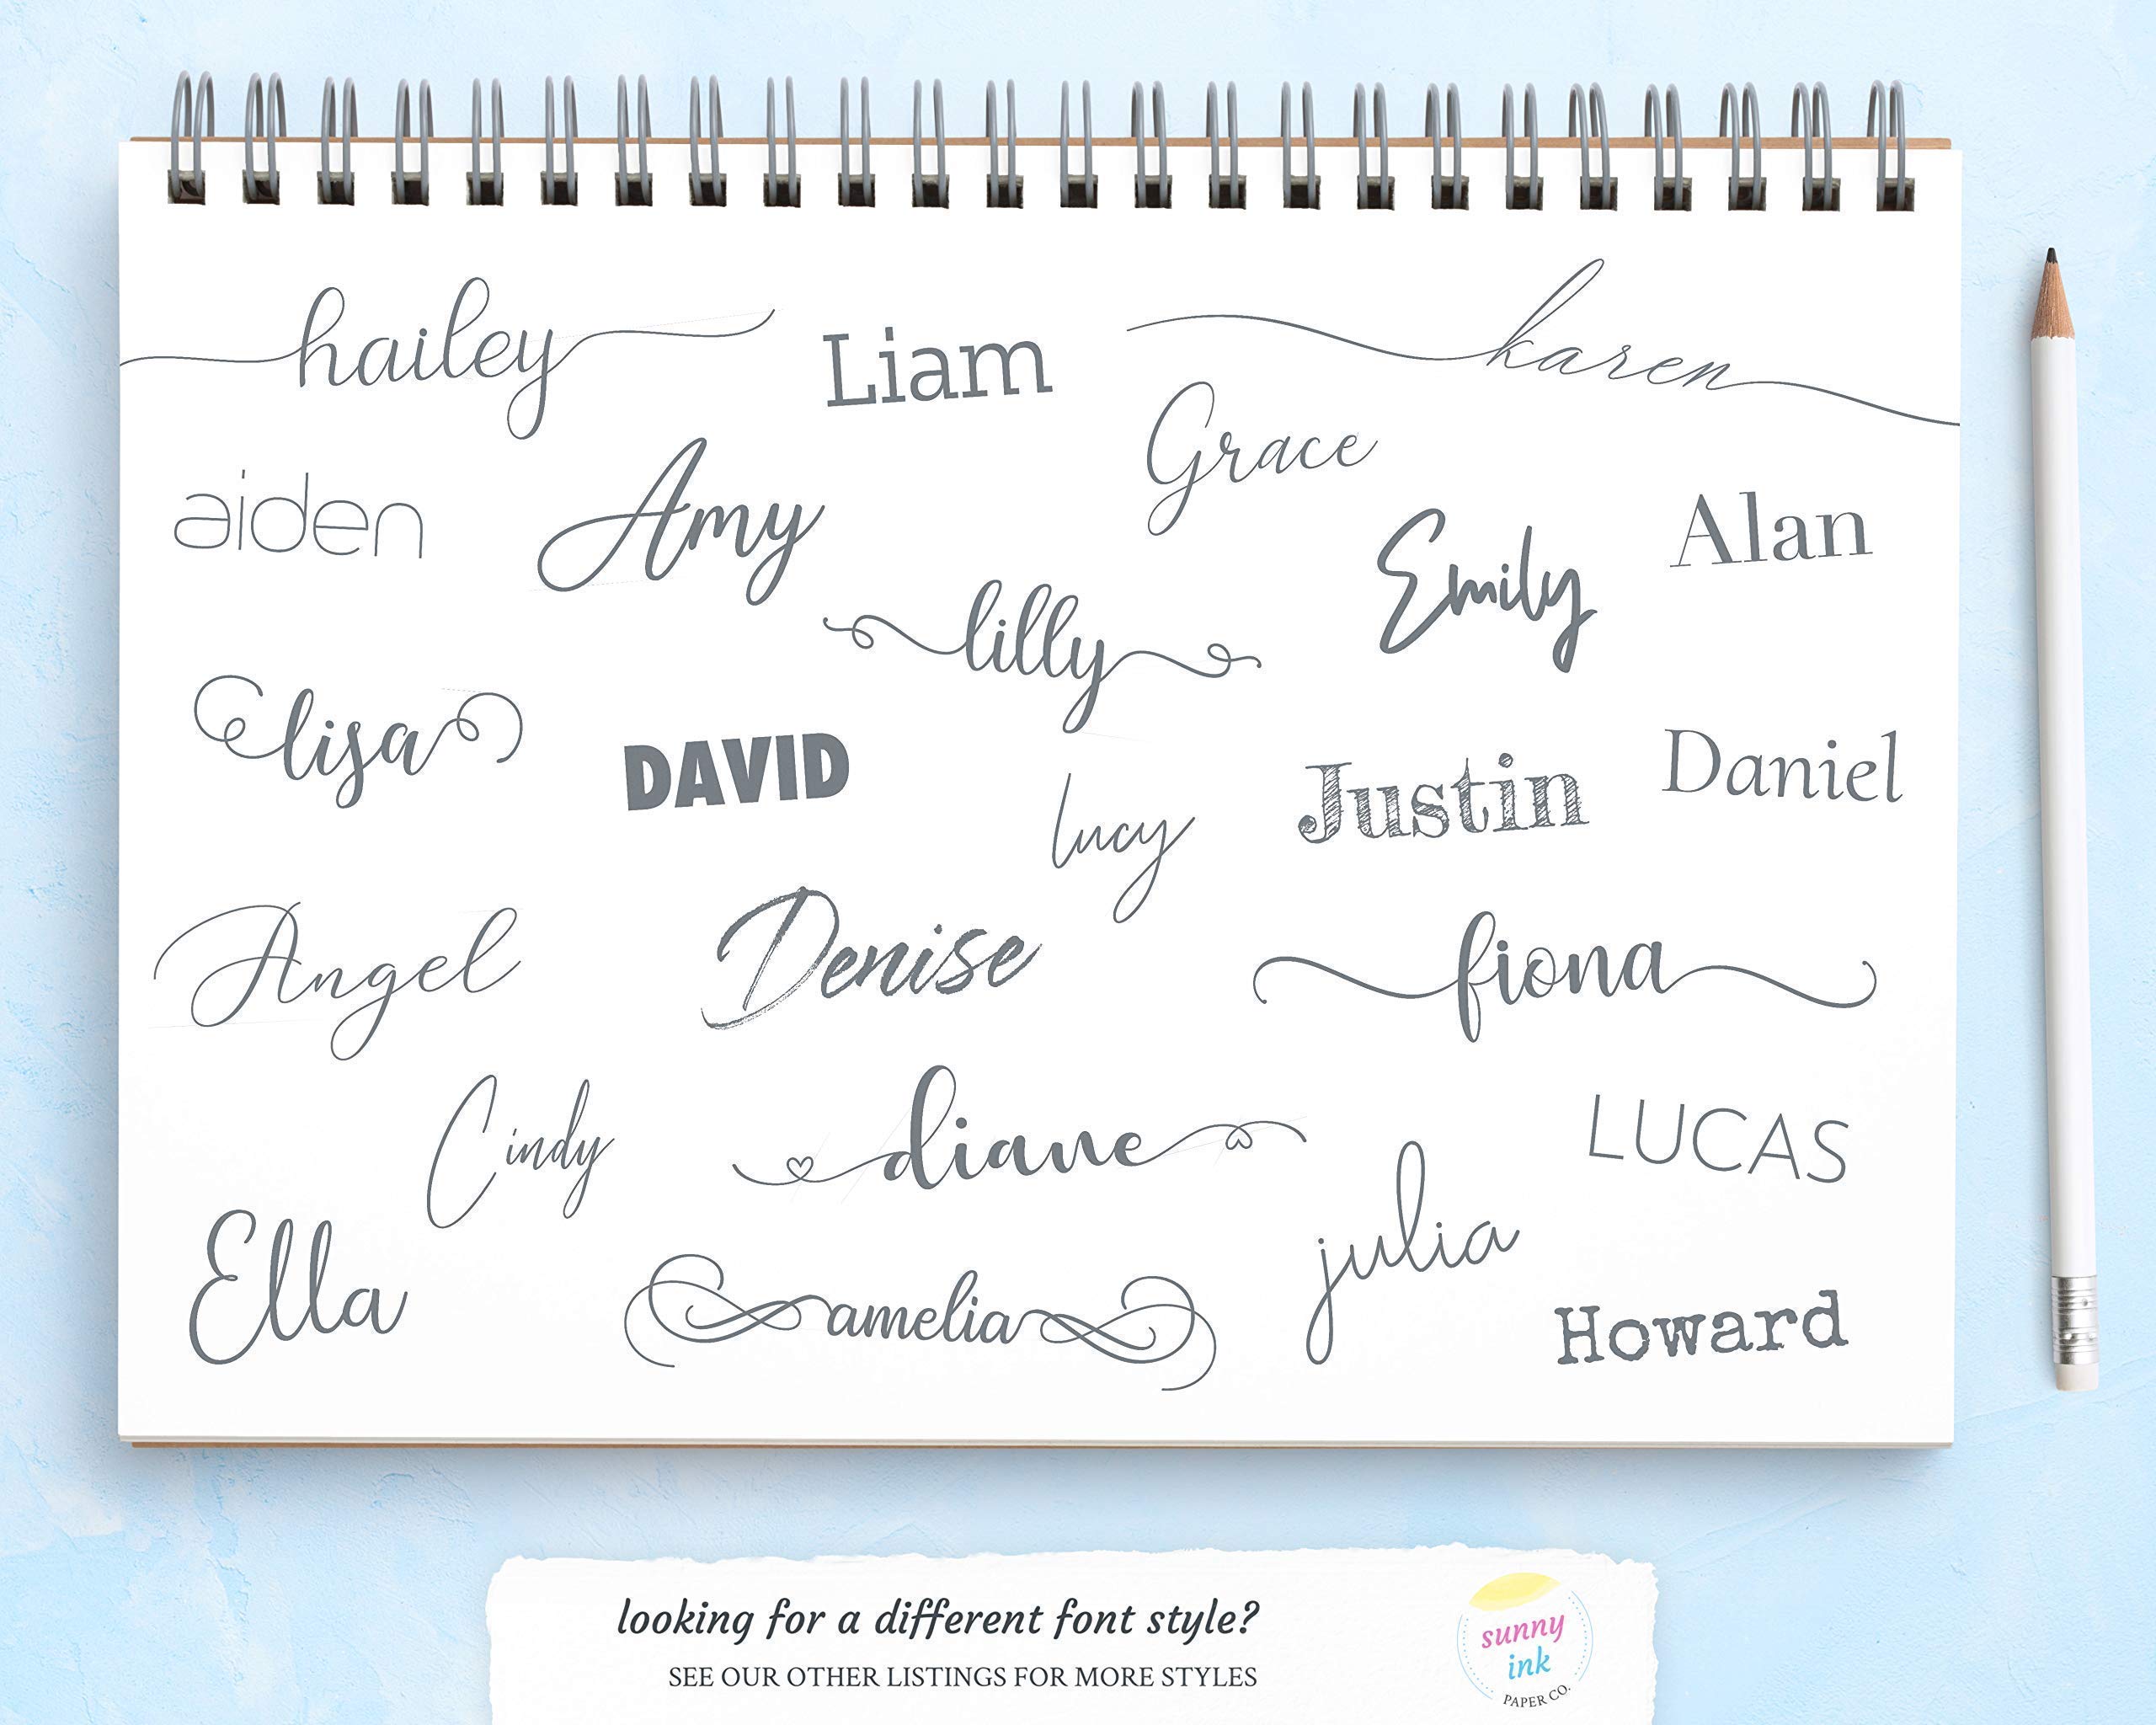 hailey
Liam
karen
Grace
aiden
Amy
Emily
Alan
lilly
lisa
DAVID
Justin
Daniel
lucy
Angel
Denise
fiona
Cindy
diane
LUCAS
julia
Ella
amelia
Howard
looking for a different font style?
SEE OUR OTHER LISTINGS FOR MORE STYLES
sunny
ink
PAPER CO.